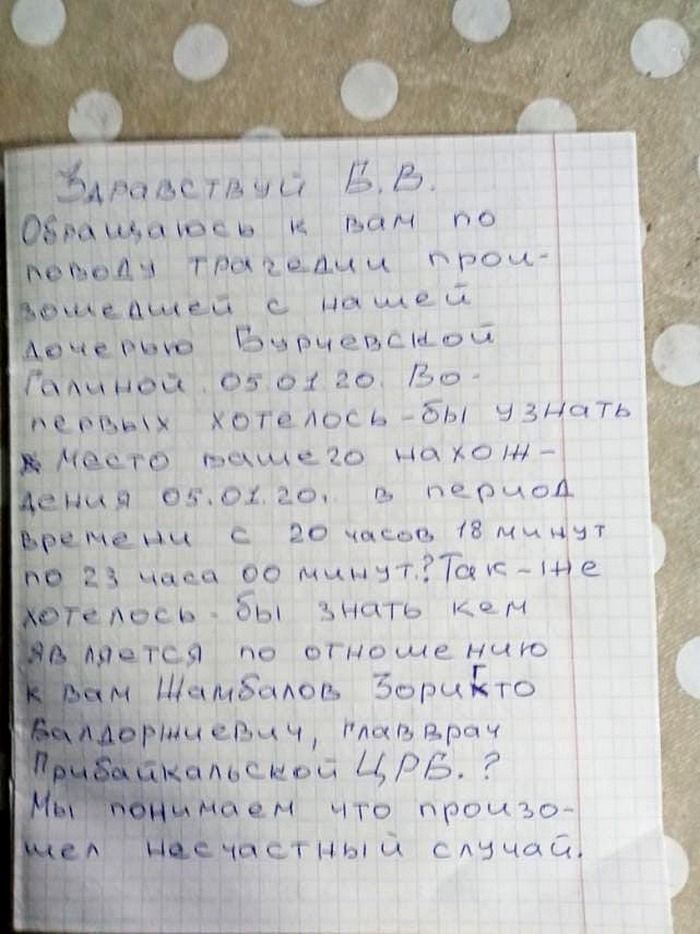 Здравствуй Б.В.
Обращаюсь к вам по
поводу трагедии прои-
зошедшей с нашей
дочерью Бурчевской
Галиной 05.01.20. Во-
первых хотелось-бы узнать
место вашего нахож-
дения 05.01.20. в период
времени с 20 часов 18 минут
по 23 часа 00 минут? Так-же
хотелось-бы знать кем
является по отношению
к вам Жамбалов Зорикто
Валдоржиевич, главврач
Прибайкальской ЦРБ.?
Мы понимаем что произо-
шел несчастный случай.